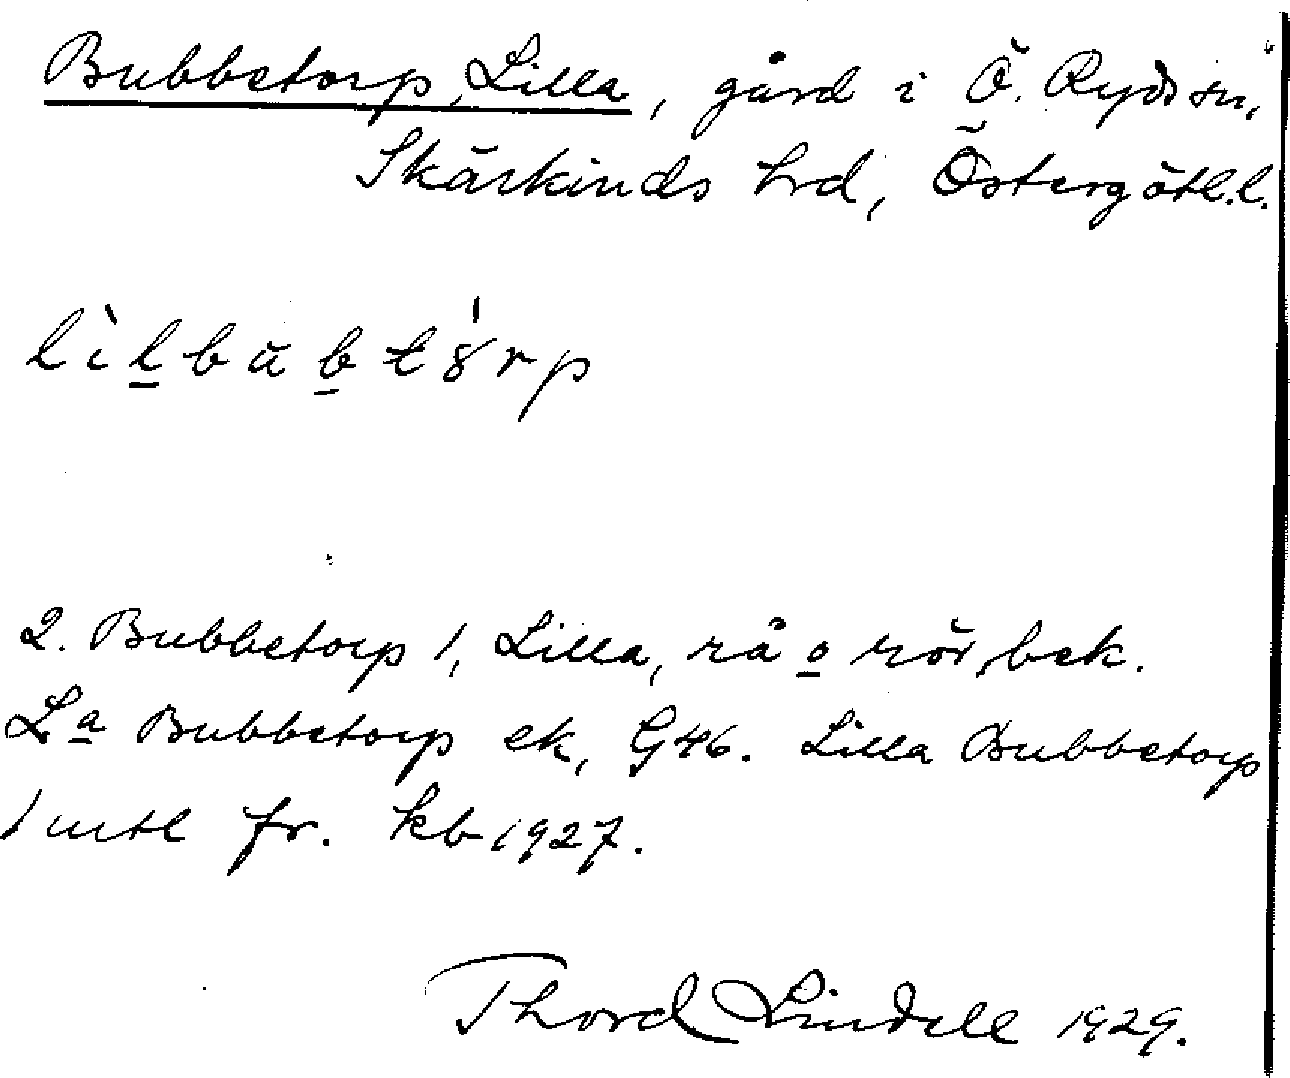 Bubbetorp, Lilla, gård i Ö. Ryds sn,
Skärkinds hrd, Östergötl. l.
lìlbubtórp
2. Bubbetorp 1, Lilla, rå o rör, bek.
La Bubbetorp ek, G46. Lilla Bubbetorp
1 mtl fr. kb 1927.
Thord Lindell 1929.